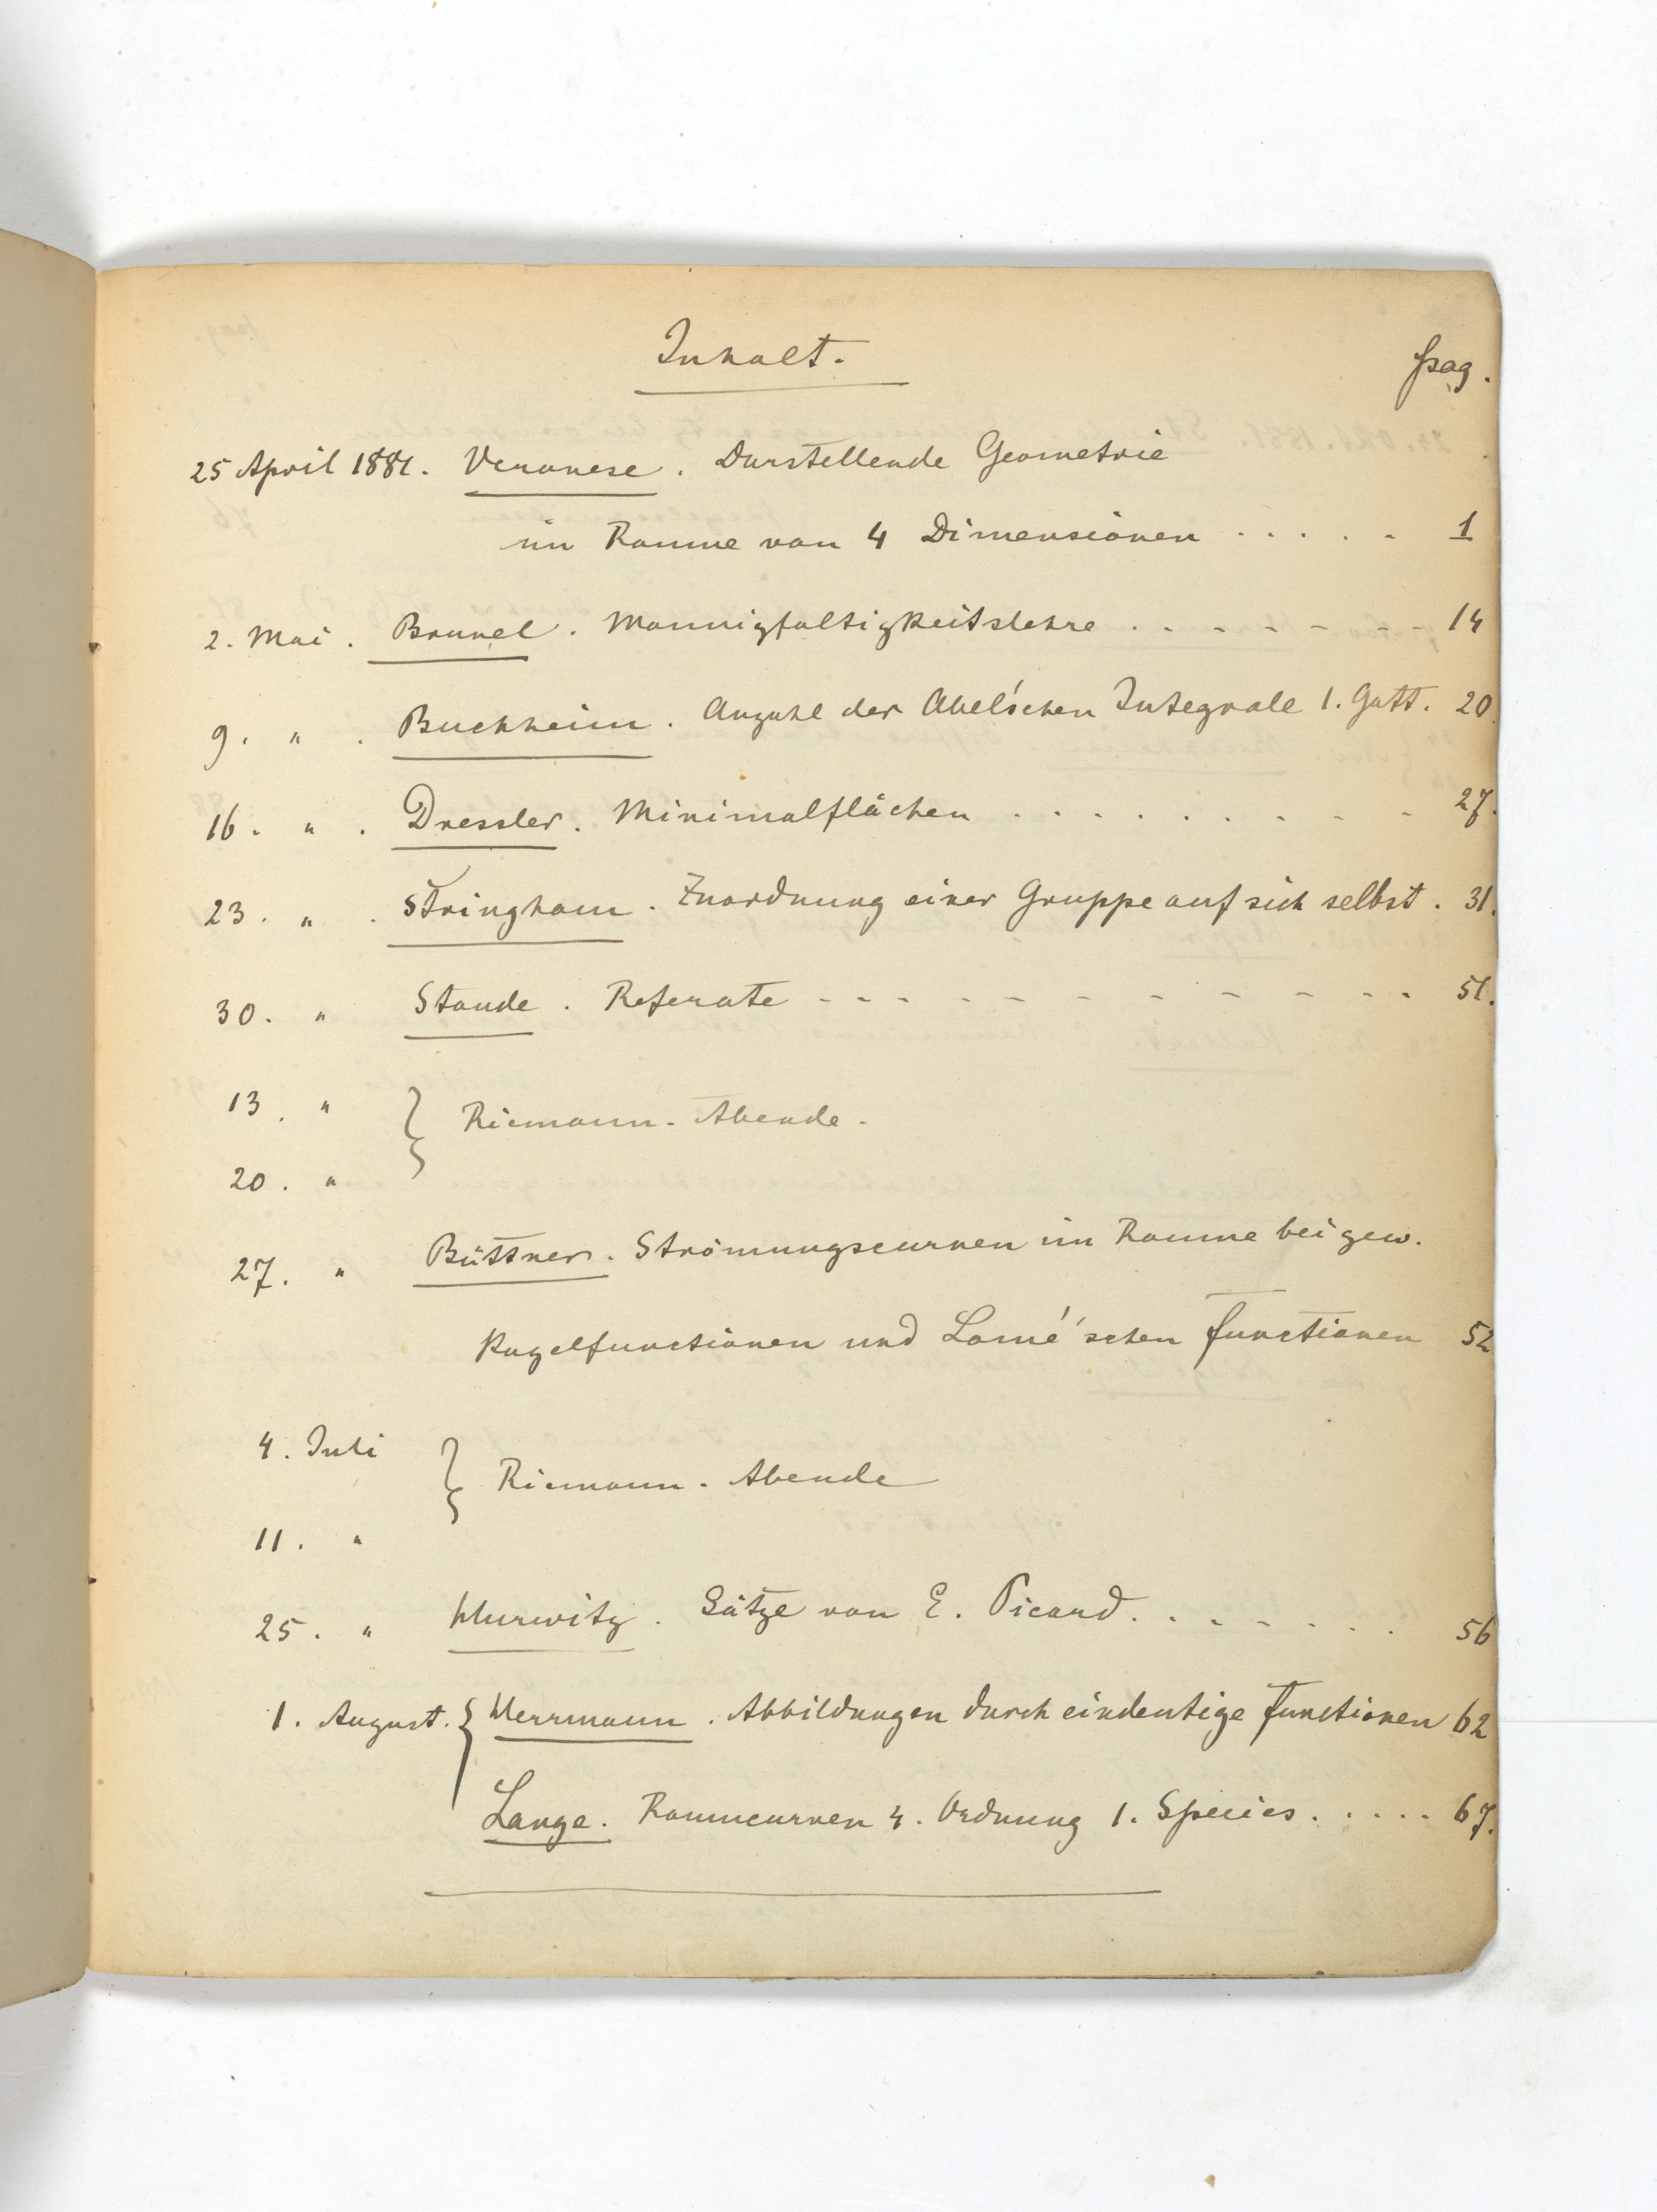 Inhalt.
pag.
25 April 1881. Veronese. Darstellende Geometrie
im Raume von 4 Dimensionen . . . . . 1
2. Mai. Brunel. Mannigfaltigkeitslehre . . . . . . . 14
9. " . Buchheim. Anzahl der Abel'schen Integrale 1. Gatt. 20
16. " . Dressler. Minimalflächen . . . . . . . . . 27.
23. " . Stringham. Zuordnung einer Gruppe auf sich selbst. 31.
30. " Staude. Referate - - - - - - - - - - - - 51.
13. "
} Riemann-Abende.
20. "
27. " Büttner. Strömungscurven im Raume bei gew.
Kugelfunctionen und Lamé'schen Functionen 52
4. Juli
} Riemann-Abende
11. "
25. " Hurwitz. Sätze von E. Picard. . . . . . . 56
1. August. { Herrmann. Abbildungen durch eindeutige Functionen 62
Lange. Raumcurven 4. Ordnung 1. Species. . . . . 67.